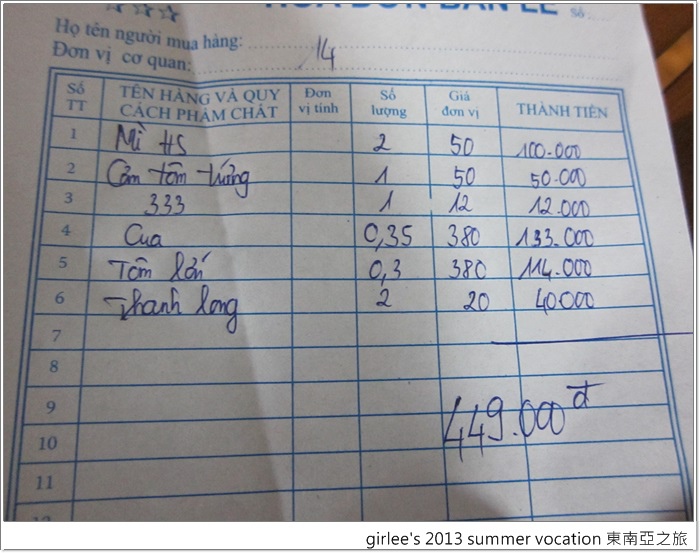 HÓA ĐƠN BÁN LẺ Số
Họ tên người mua hàng:
Đơn vị cơ quan: 14
Số TT TÊN HÀNG VÀ QUY CÁCH PHẨM CHẤT Đơn vị tính Số lượng Giá đơn vị THÀNH TIỀN
1 Mì HS 2 50 100.000
2 Cơm tôm trứng 1 50 50.000
3 333 1 12 12.000
4 Cua 0,35 380 133.000
5 Tôm 0,3 380 114.000
6 Thanh long 2 20 40.000
7
8
9 449.000đ
10
11
12
girlee's 2013 summer vocation 東南亞之旅